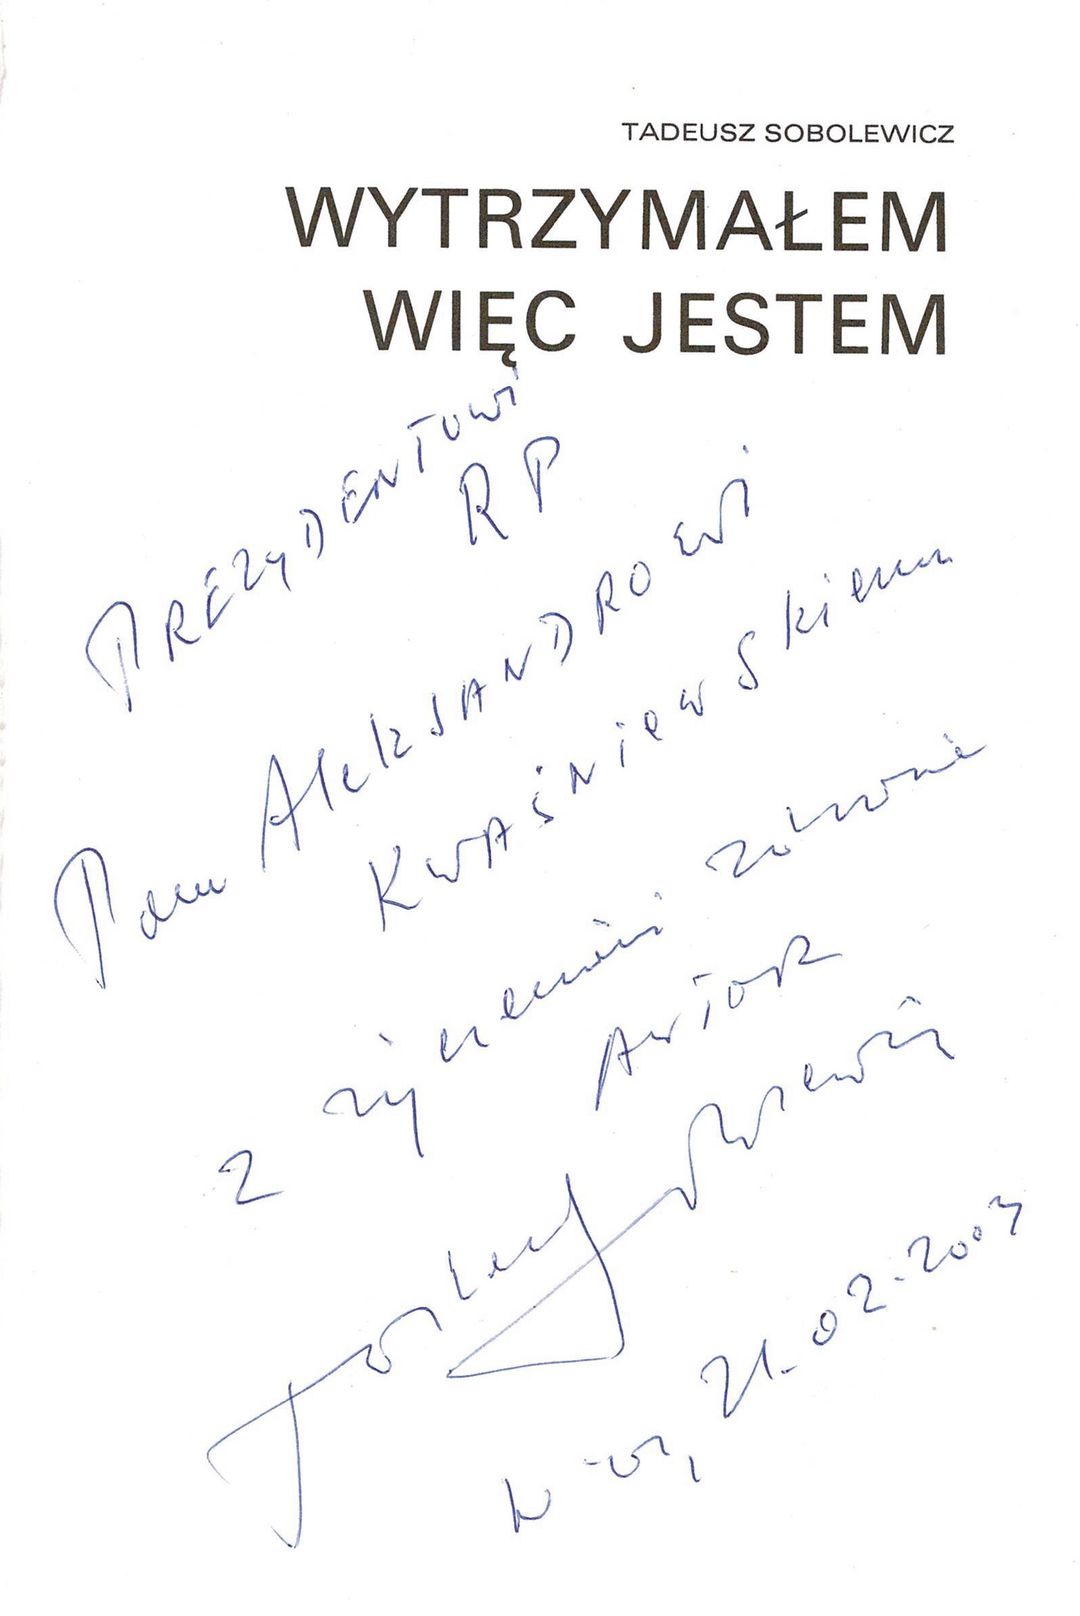 TADEUSZ SOBOLEWICZ
WYTRZYMAŁEM
WIĘC JESTEM
PREZYDENTOWI
RP
Panu ALEKSANDROWI
KWAŚNIEWSKIemu
z życzeniami zdrowia
AUTOR
Tadeusz Sobolewicz
W-wa, 21.02.2004